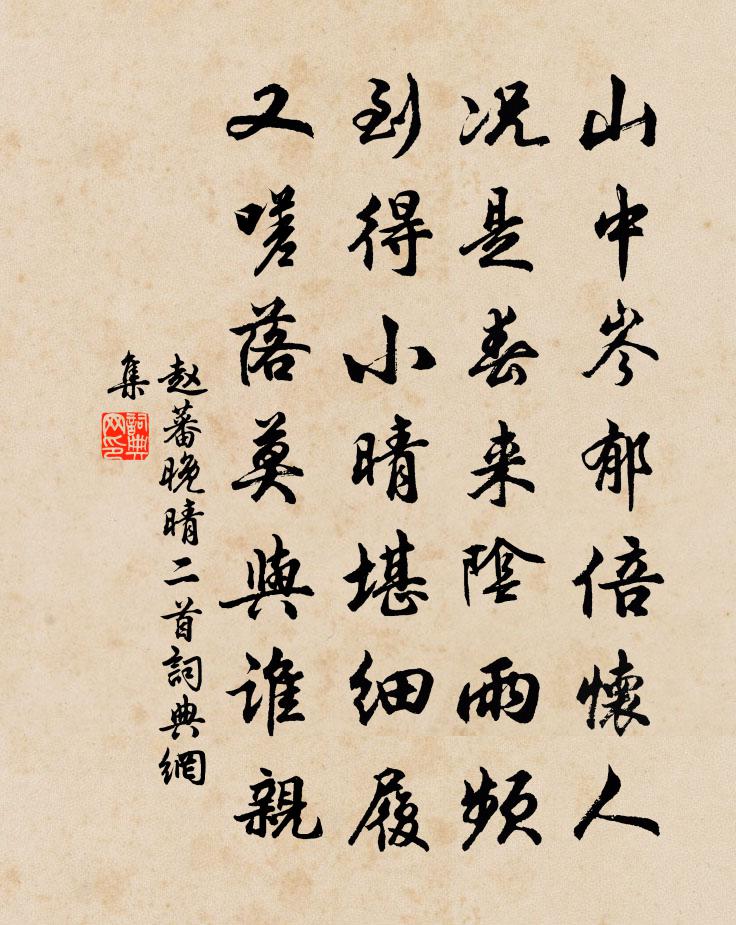 山中岑郁倍懷人
况是春来陰雨頻
到得小晴堪細履
又嗟落莫與誰親
赵蕃晚晴二首詞典網
集
詞典
网印